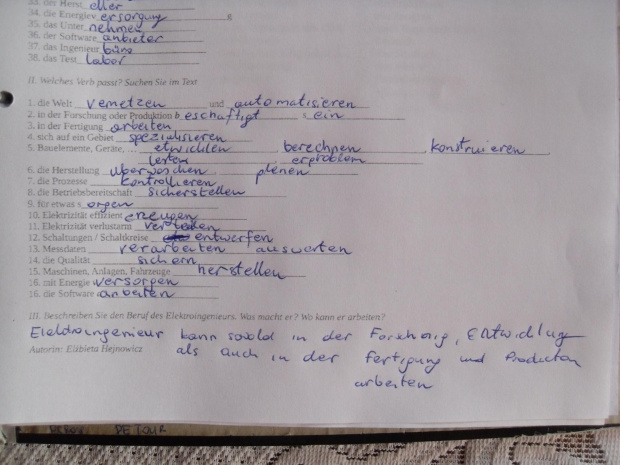 33. der Herst eller
34. die Energiev ersorgung
35. das Unter nehmen
36. der Software anbieter
37. das Ingenieur büro
38. das Test labor
II. Welches Verb passt? Suchen Sie im Text
1. die Welt vernetzen und automatisieren
2. in der Forschung oder Produktion b eschäftigt s ein
3. in der Fertigung arbeiten
4. sich auf ein Gebiet spezialisieren
5. Bauelemente, Geräte, ... etwicklen, berechnen, konstruieren
testen erproblem
6. die Herstellung überwachen plenen
7. die Prozesse kontrollieren
8. die Betriebsbereitschaft sicherstellen
9. für etwas s orgen
10. Elektrizität effizient erzeugen
11. Elektrizität verlustarm verteilen
12. Schaltungen / Schaltkreise entwerfen
13. Messdaten verarbeiten auswerten
14. die Qualität sichern
15. Maschinen, Anlagen, Fahrzeuge herstellen
16. mit Energie versorgen
16. die Software arbeiten
III. Beschreiben Sie den Beruf des Elektroingenieurs. Was macht er? Wo kann er arbeiten?
Elektroingenieur kann sowohl in der Forschung, Entwicklug
Autorin: Elżbieta Hejnowicz als auch in der Fertigung und Production
arbeiten
DETOUR